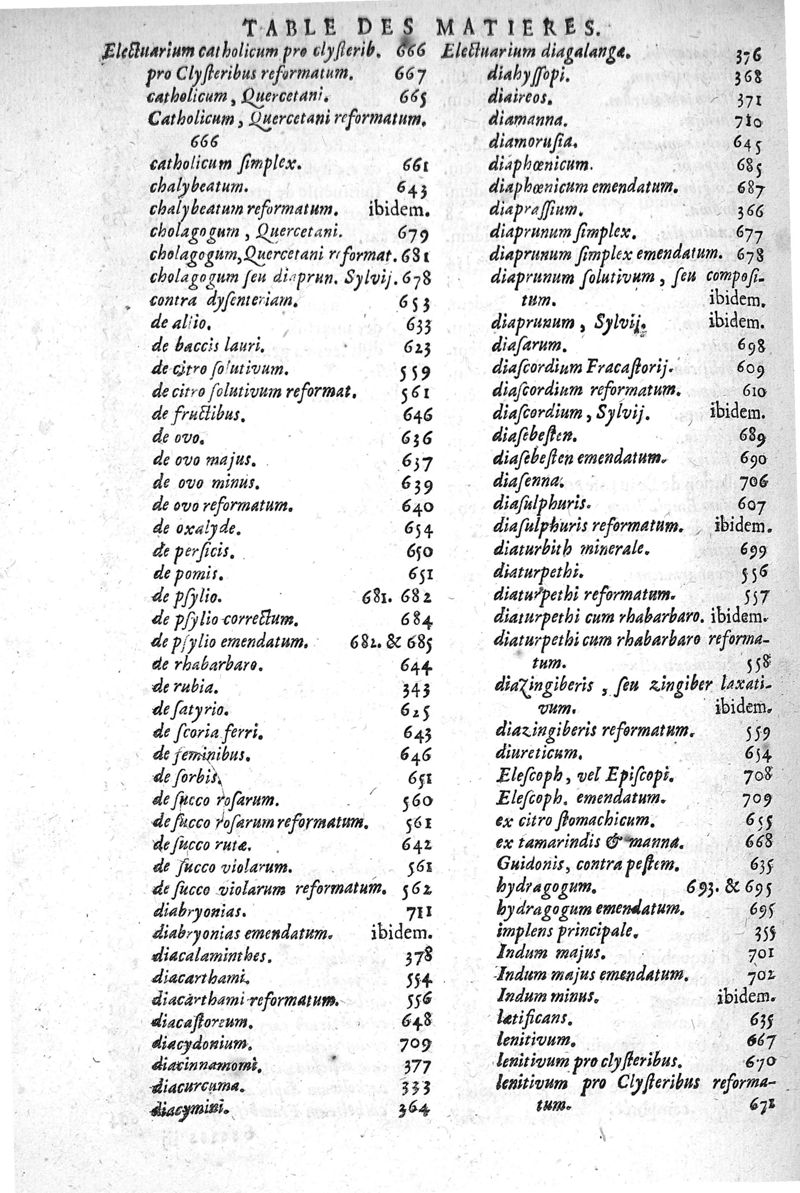 TABLE DES MATIERES.
Electuarium catholicum pro clyſterib. 666
pro Clyſteribus reformatum. 667
catholicum, Quercetani. 665
Catholicum, Quercetani reformatum.
666
catholicum ſimplex. 661
chalybeatum. 643
chalybeatum reformatum. ibidem.
cholagogum, Quercetani. 679
cholagogum, Quercetani reformat. 681
cholagogum ſeu diaprun. Sylvij. 678
contra dyſenteriam. 653
de allio. 633
de baccis lauri. 623
de citro ſolutivum. 559
de citro ſolutivum reformat. 561
de fructibus. 646
de ovo. 636
de ovo majus. 637
de ovo minus. 639
de ovo reformatum. 640
de oxalyde. 654
de perſicis. 650
de pomis. 651
de pſylio. 681. 682
de pſylio correctum. 684
de pſylio emendatum. 682. & 685
de rhabarbaro. 644
de rubia. 343
de ſatyrio. 625
de ſcoria ferri. 643
de ſeminibus. 646
de ſorbis. 651
de ſucco roſarum. 560
de ſucco roſarum reformatum. 561
de ſucco rutæ. 642
de ſucco violarum. 561
de ſucco violarum reformatum. 562
diabryonias. 711
diabryonias emendatum. ibidem.
diacalaminthes. 378
diacarthami. 554
diacarthami reformatum. 556
diacaſtoreum. 648
diacydonium. 709
diacinnamomi. 377
diacurcuma. 333
diacymini. 364
Electuarium diagalangæ. 376
diahyſſopi. 368
diaireos. 371
diamanna. 710
diamoruſia. 645
diaphœnicum. 685
diaphœnicum emendatum. 687
diapraſſium. 366
diaprunum ſimplex. 677
diaprunum ſimplex emendatum. 678
diaprunum ſolutivum, ſeu compoſi-
tum. ibidem.
diaprunum, Sylvij. ibidem.
diaſarum. 698
diaſcordium Fracaſtorij. 609
diaſcordium reformatum. 610
diaſcordium, Sylvij. ibidem.
diaſebeſten. 689
diaſebeſten emendatum. 690
diaſenna. 706
diaſulphuris. 607
diaſulphuris reformatum. ibidem.
diaturbith minerale. 699
diaturpethi. 556
diaturpethi reformatum. 557
diaturpethi cum rhabarbaro. ibidem.
diaturpethi cum rhabarbaro reforma-
tum. 558
diaZingiberis, ſeu zingiber laxati-
vum. ibidem.
diazingiberis reformatum. 559
diureticum. 654
Eleſcoph, vel Epiſcopi. 708
Eleſcoph. emendatum. 709
ex citro ſtomachicum. 655
ex tamarindis & manna. 668
Guidonis, contra peſtem. 635
hydragogum. 693. & 695
hydragogum emendatum. 695
implens principale. 355
Indum majus. 701
Indum majus emendatum. 702
Indum minus. ibidem.
lætificans. 635
lenitivum. 667
lenitivum pro clyſteribus. 670
lenitivum pro Clyſteribus reforma-
tum. 671